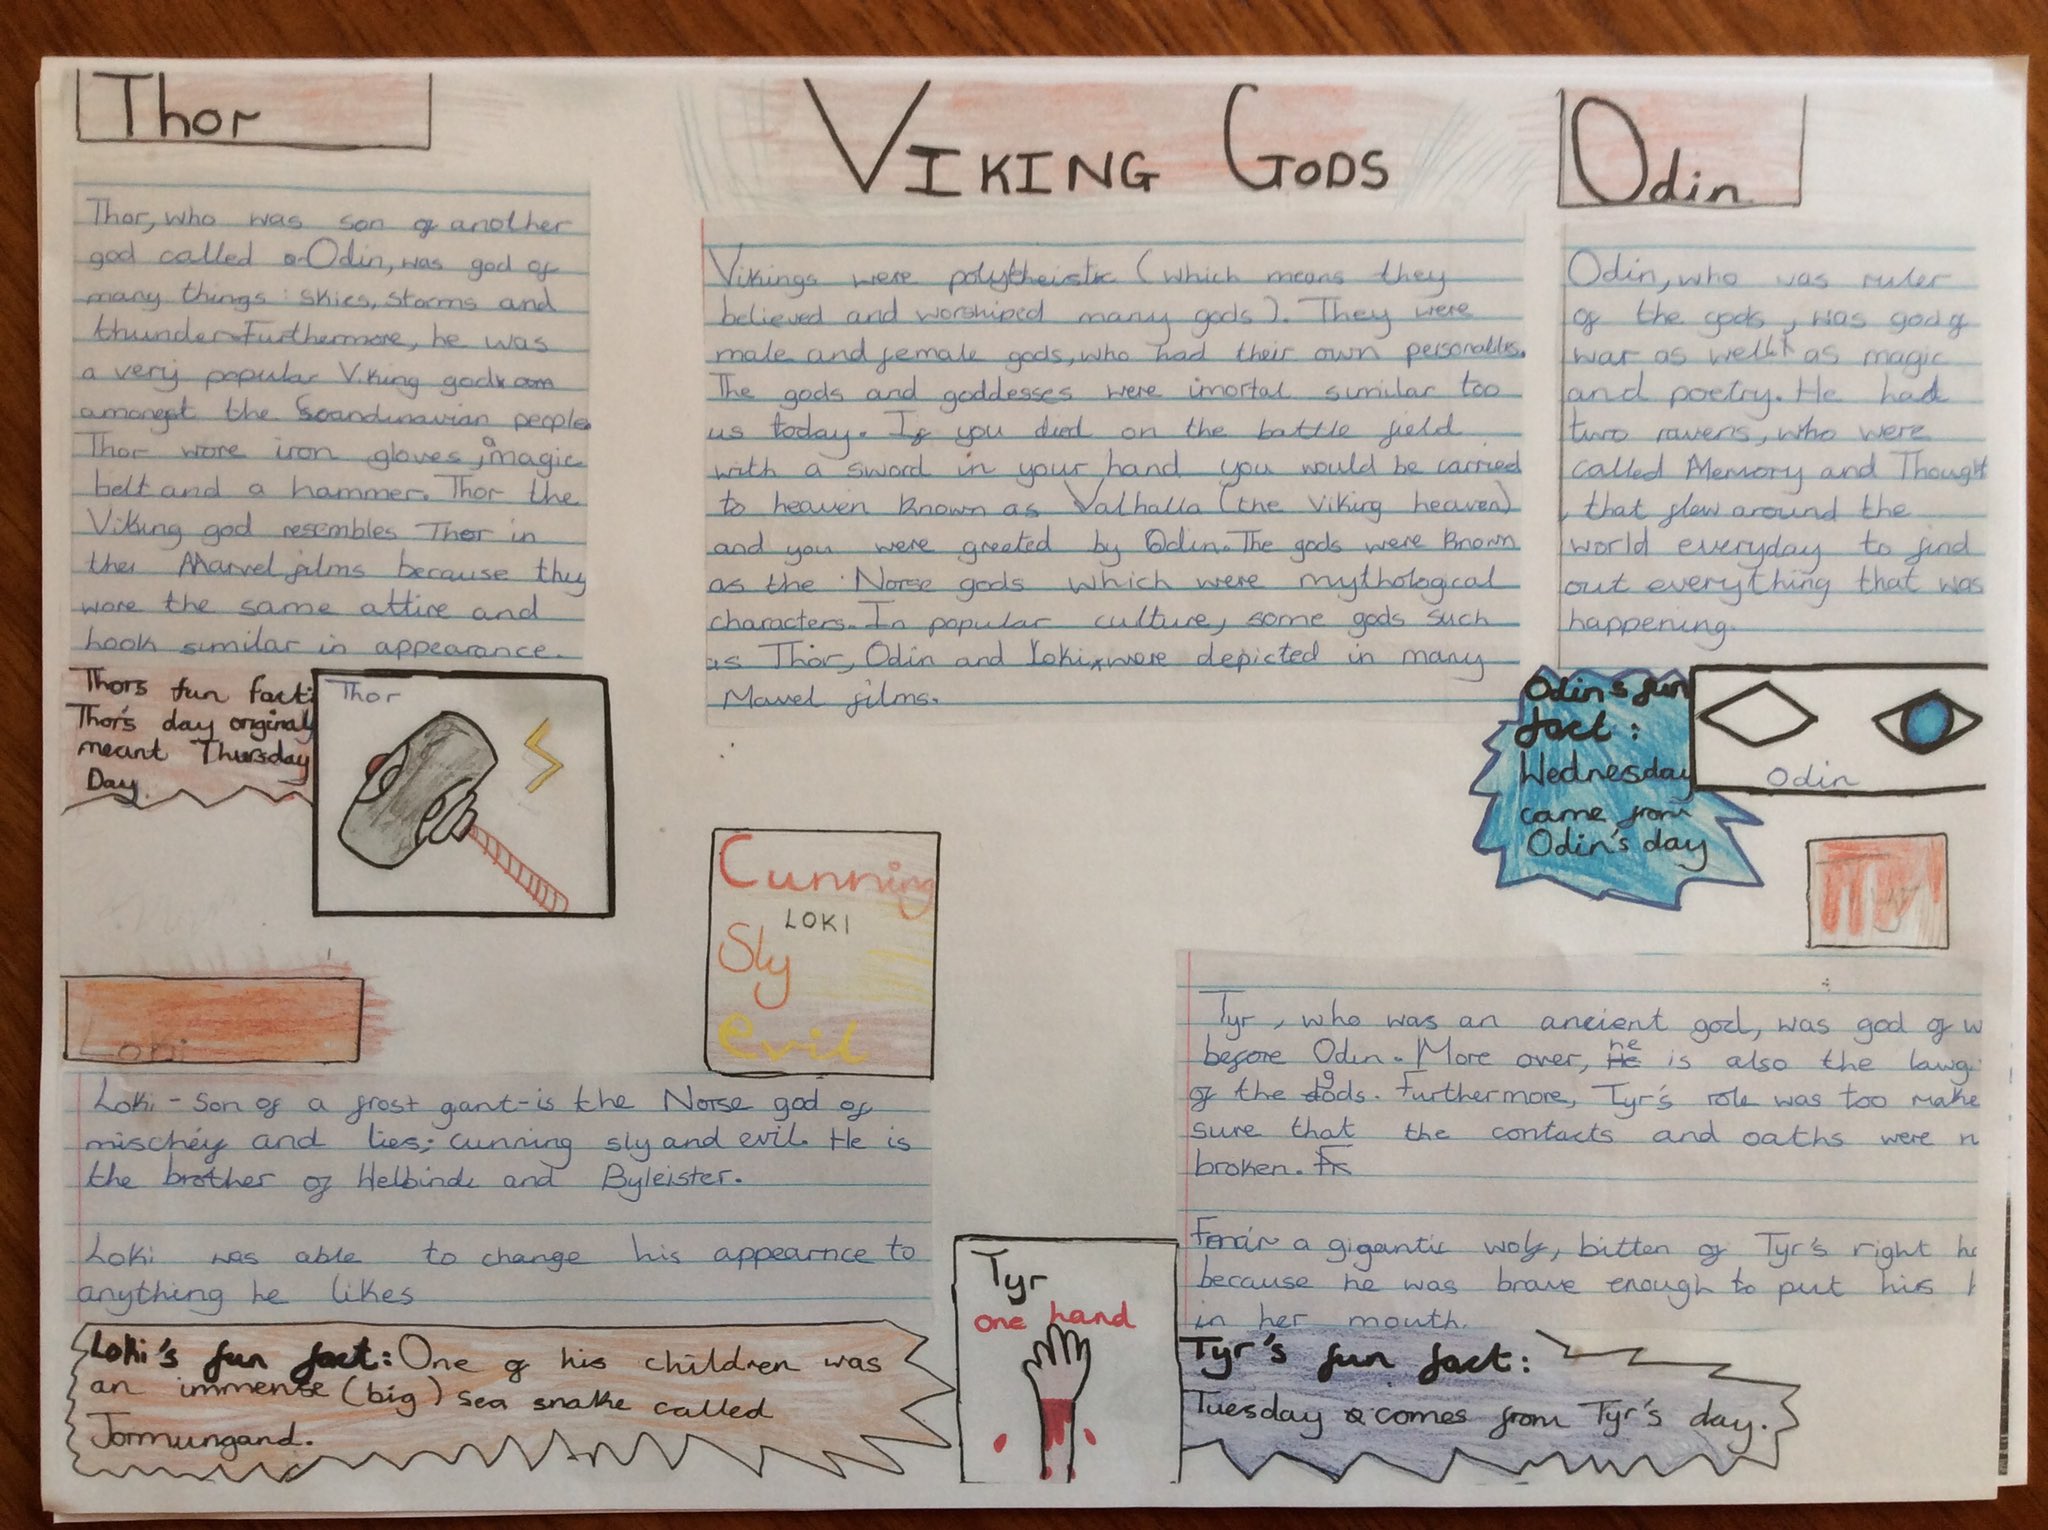 Thor
Thor, who was son of another
god called Odin, was god of
many things: skies, storms and
thunder. Furthermore, he was
a very popular Viking god
amongst the Scandinavian people.
Thor wore iron gloves, a magic
belt and a hammer. Thor the
Viking god resembles Thor in
the Marvel films because they
wore the same attire and
look similar in appearance.
Thors fun fact:
Thor's day originaly
meant Thursday
Day.
Thor
VIKING GODS
Vikings were polytheistic (which means they
believed and worshiped many gods). They were
male and female gods, who had their own personalites.
The gods and goddesses were imortal similar too
us today. If you died on the battle field
with a sword in your hand you would be carried
to heaven known as Valhalla (the Viking heaven)
and you were greeted by Odin. The gods were known
as the Norse gods which were mythological
characters. In popular culture, some gods such
as Thor, Odin and Loki were depicted in many
Mavel films.
Odin
Odin, who was ruler
of the gods, was god of
war as well as magic
and poetry. He had
two ravens, who were
called Memory and Thought
, that flew around the
world everyday to find
out everything that was
happening.
Odin's fun
fact:
Wednesday
came from
Odin's day
Odin
Cunning
LOKI
Sly
evil
Loki
Loki - Son of a frost gant - is the Norse god of
mischéy and lies; cunning sly and evil. He is
the brother of Helbindi and Byleister.
Loki was able to change his appearnce to
anything he likes
Loki's fun fact: One of his children was
an immense (big) sea snake called
Jormungand.
Tyr, who was an ancient god, was god of w
before Odin. More over, he is also the lawg
of the gods. Furthermore, Tyr's role was too make
sure that the contacts and oaths were n
broken.
a gigantic wolf, bitten of Tyr's right ha
because he was brave enough to put his h
in her mouth.
Tyr
one hand
Tyr's fun fact:
Tuesday comes from Tyr's day.